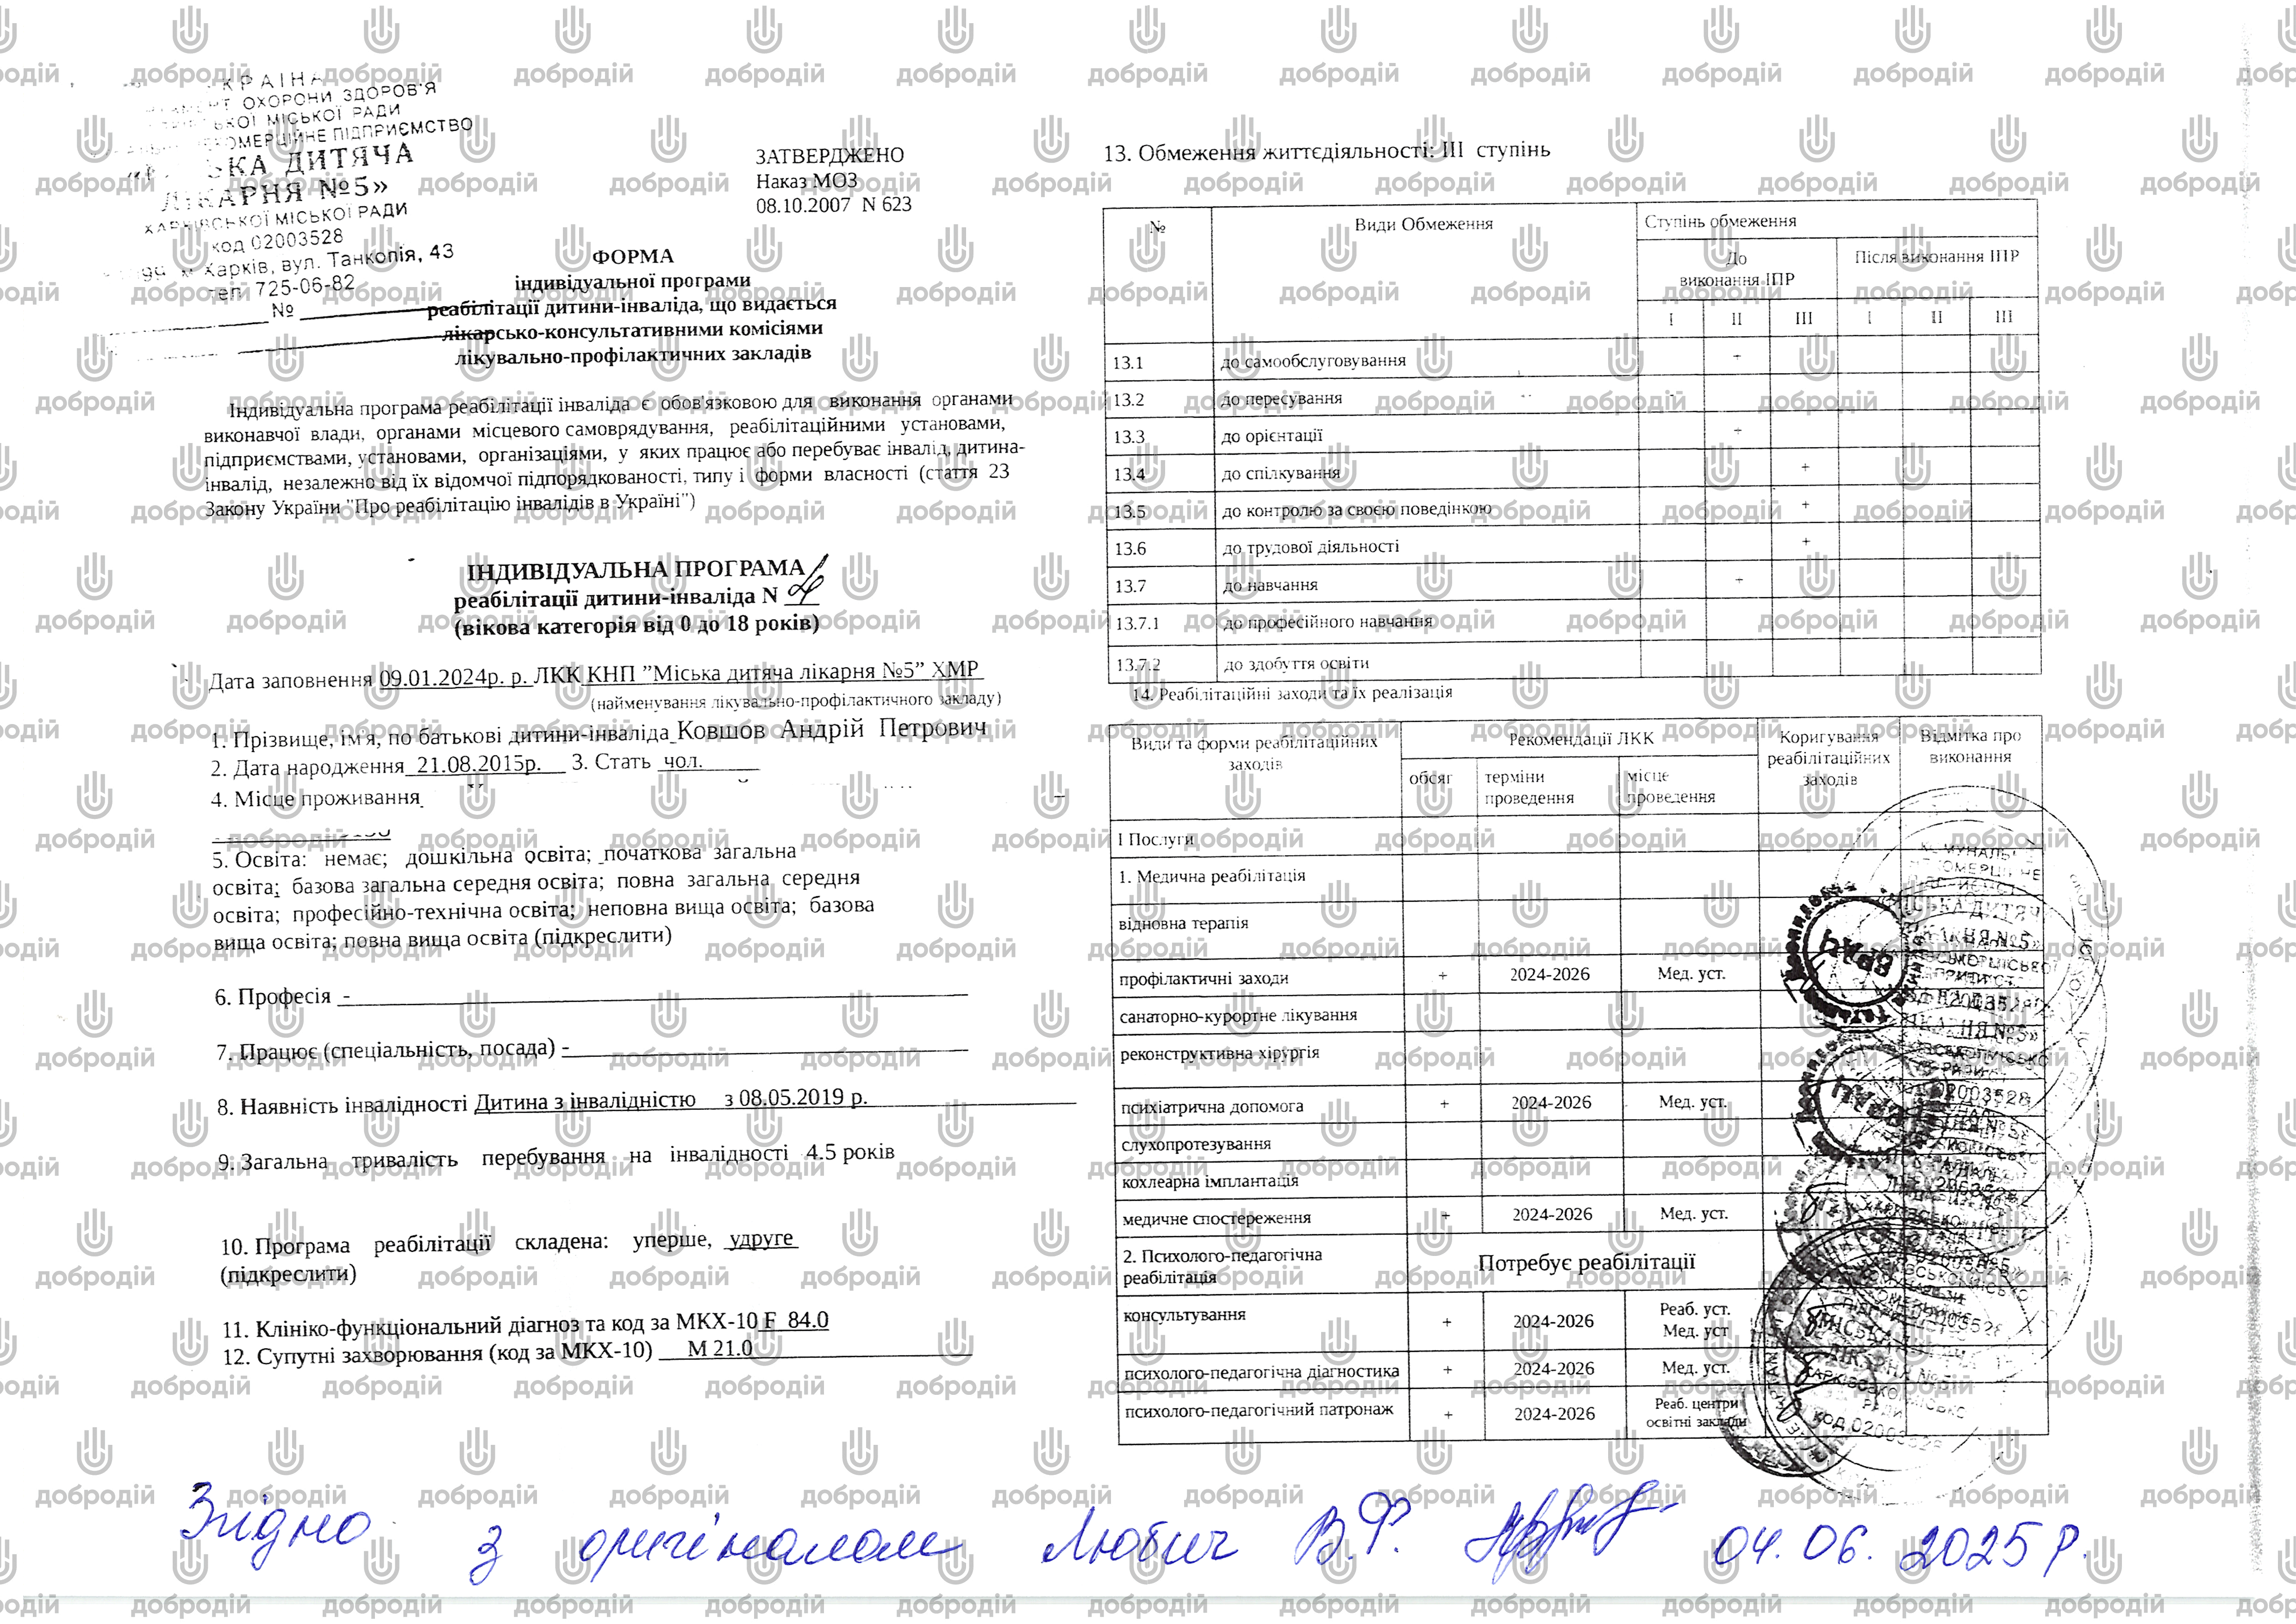 УКРАЇНА
ОХОРОНИ ЗДОРОВ'Я
МІСЬКОЇ РАДИ
ПІДПРИЄМСТВО
ДИТЯЧА
ЛІКАРНЯ №5»
ХАРКІВСЬКОЇ МІСЬКОЇ РАДИ
код 02003528
м. Харків, вул. Танкопія, 43
тел. 725-06-82
№
ЗАТВЕРДЖЕНО
Наказ МОЗ
08.10.2007 N 623
ФОРМА
індивідуальної програми
реабілітації дитини-інваліда, що видається
лікарсько-консультативними комісіями
лікувально-профілактичних закладів
Індивідуальна програма реабілітації інваліда є обов'язковою для виконання органами
виконавчої влади, органами місцевого самоврядування, реабілітаційними установами,
підприємствами, установами, організаціями, у яких працює або перебуває інвалід, дитина-
інвалід, незалежно від їх відомчої підпорядкованості, типу і форми власності (стаття 23
Закону України "Про реабілітацію інвалідів в Україні")
ІНДИВІДУАЛЬНА ПРОГРАМА
реабілітації дитини-інваліда N
(вікова категорія від 0 до 18 років)
Дата заповнення 09.01.2024р. р. ЛКК КНП ”Міська дитяча лікарня №5” ХМР
(найменування лікувально-профілактичного закладу)
1. Прізвище, ім'я, по батькові дитини-інваліда Ковшов Андрій Петрович
2. Дата народження 21.08.2015р. 3. Стать чол.
4. Місце проживання
5. Освіта: немає; дошкільна освіта; початкова загальна
освіта; базова загальна середня освіта; повна загальна середня
освіта; професійно-технічна освіта; неповна вища освіта; базова
вища освіта; повна вища освіта (підкреслити)
6. Професія -
7. Працює (спеціальність, посада) -
8. Наявність інвалідності Дитина з інвалідністю з 08.05.2019 р.
9. Загальна тривалість перебування на інвалідності 4.5 років
10. Програма реабілітації складена: уперше, удруге
(підкреслити)
11. Клініко-функціональний діагноз та код за МКХ-10 F 84.0
12. Супутні захворювання (код за МКХ-10) М 21.0
13. Обмеження життєдіяльності: ІІІ ступінь
№ Види Обмеження Ступінь обмеження
До виконання ІПР Після виконання ІПР
I II III I II III
13.1 до самообслуговування +
13.2 до пересування -
13.3 до орієнтації +
13.4 до спілкування +
13.5 до контролю за своєю поведінкою +
13.6 до трудової діяльності +
13.7 до навчання +
13.7.1 до професійного навчання
13.7.2 до здобуття освіти
14. Реабілітаційні заходи та їх реалізація
Види та форми реабілітаційних заходів Рекомендації ЛКК Коригування реабілітаційних заходів Відмітка про виконання
обсяг терміни проведення місце проведення
І Послуги
1. Медична реабілітація
відновна терапія
профілактичні заходи + 2024-2026 Мед. уст.
санаторно-курортне лікування
реконструктивна хірургія
психіатрична допомога + 2024-2026 Мед. уст.
слухопротезування
кохлеарна імплантація
медичне спостереження + 2024-2026 Мед. уст.
2. Психолого-педагогічна реабілітація Потребує реабілітації
консультування + 2024-2026 Реаб. уст. Мед. уст
психолого-педагогічна діагностика + 2024-2026 Мед. уст.
психолого-педагогічний патронаж + 2024-2026 Реаб. центри освітні заклади
Згідно з оригіналом Любич В.Ф. 04.06.2025 р.
добродій